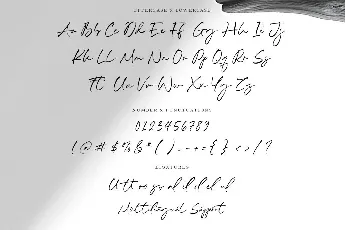 UPPERCASE & LOWERCASE
Aa Bb Cc Dd Ee Ff Gg Hh Ii Jj
Kk Ll Mm Nn Oo Pp Qq Rr Ss
Tt Uu Vv Ww Xx Yy Zz
NUMBER & PUNCTUATIONS
0123456789
! @ # $ % & * ( ) - + = { } < > / ?
LIGATURES
Multilingual Support